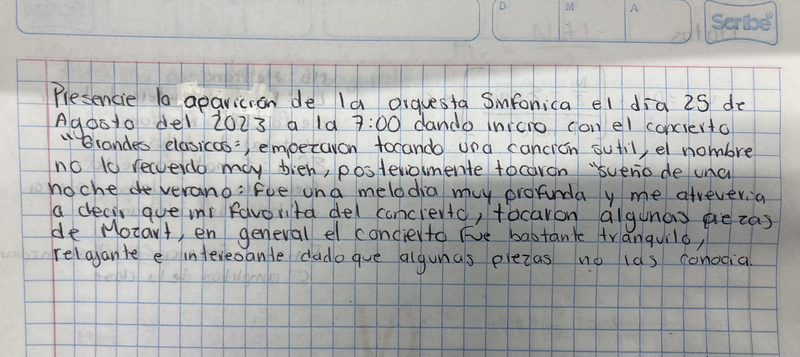 D M A
Scribe
Presencie la aparición de la orquesta Sinfonica el día 25 de
Agosto del 2023 a la 7:00 dando inicio con el concierto
"Grandes clasicos", empezaron tocando una canción sutil, el nombre
no lo recuerdo muy bien, posteriomente tocaron "sueño de una
noche de verano: fue una melodia muy profunda y me atreveria
a decir que mi favorita del concierto, tocaron algunas piezas
de Mozart, en general el concierto fue bastante tranquilo,
relajante e interesante dado que algunas piezas no las conocia.